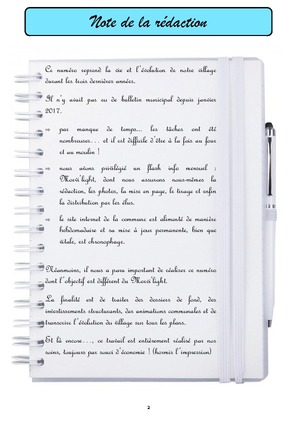 Note de la rédaction
Ce numéro reprend la vie et l'évolution de notre village
durant les trois dernières années.
Il n'y avait pas eu de bulletin municipal depuis janvier
2017.
⇨ par manque de temps... les tâches ont été
nombreuses... et il est difficile d'être à la fois au four
et au moulin !
⇨ nous avons privilégié un flash info mensuel :
light, dont nous assurons nous-mêmes la
rédaction, les photos, la mise en page, le tirage et enfin
la distribution par les élus.
⇨ le site internet de la commune est alimenté de manière
hebdomadaire et sa mise à jour permanente, bien que
vitale, est chronophage.
Néanmoins, il nous a paru important de réaliser ce numéro
dont l'objectif est différent du light.
La finalité est de traiter des dossiers de fond, des
investissements structurants, des animations communales et de
transcrire l'évolution du village sur tous les plans.
Et là encore..., ce travail est entièrement réalisé par nos
soins, toujours par souci d'économie ! (hormis l'impression)
2